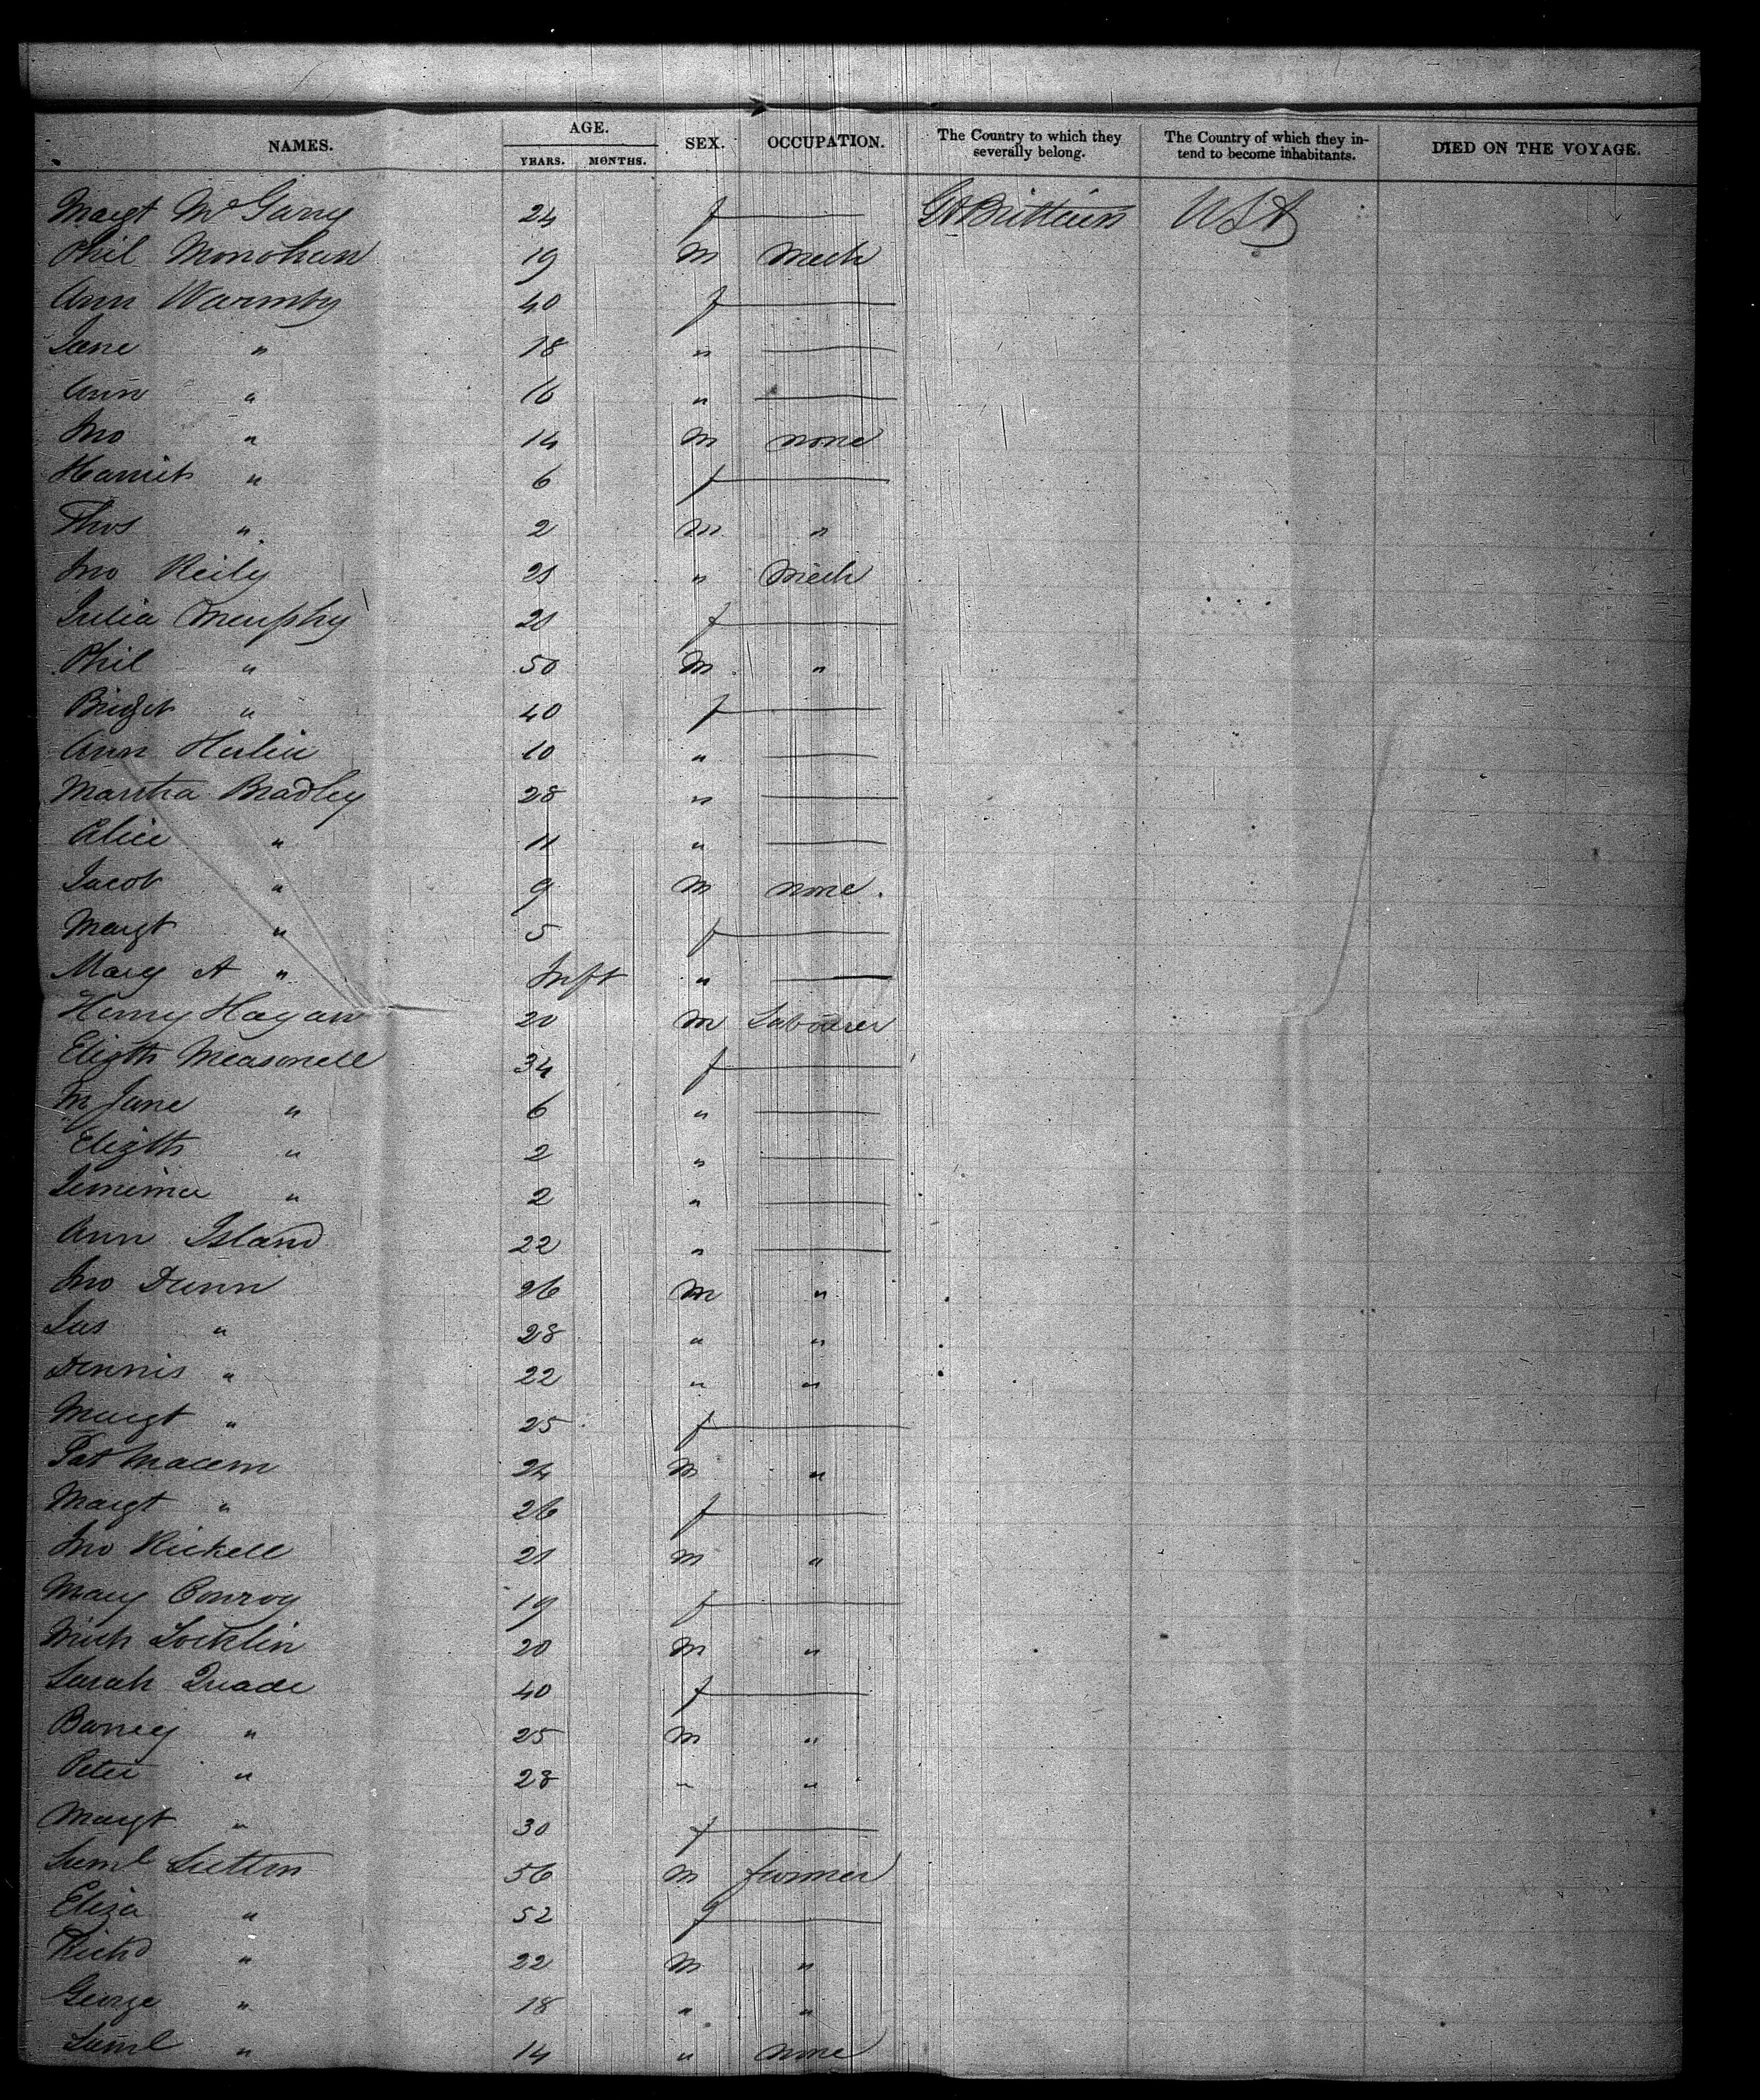 NAMES. AGE. YEARS. MONTHS. SEX. OCCUPATION. The Country to which they severally belong. The Country of which they intend to become inhabitants. DIED ON THE VOYAGE.
Margt McGarry 24 f — Gt Brittain USA
Phil Monohan 19 m Mech
Ann Warmby 40 f —
Jane " 18 " —
Ann " 16 " —
Jno " 14 m none
Harriet " 6 f —
Thos " 2 m "
Jno Reily 21 " Mech
Julia Murphy 21 f —
Phil " 50 m "
Bridget " 40 f —
Ann 10 " —
Martha Bradley 28 " —
Alice " 11 " —
Jacob " 9 m none.
Margt " 5 f —
Mary A " Inft " —
Henry Hagan 20 m Labourer
Elizth Measonell 34 f —
M Jane " 6 " —
Elizth " 2 " —
Jemima " 2 " —
Ann Island 22 " —
Jno Dunn 26 m "
Jas " 28 " "
Dennis " 22 " "
Margt " 25 f —
Pat Macem 24 m "
Margt " 26 f —
Jno Rickell 21 m "
Mary Conroy 19 f —
Mich Locklin 20 m "
Sarah Quade 40 f —
Barney " 25 m "
Peter " 28 " "
Margt " 30 f —
Saml Sutton 56 m farmer
Eliza " 52 f —
Richd " 22 m "
George " 18 " "
Saml " 14 " none